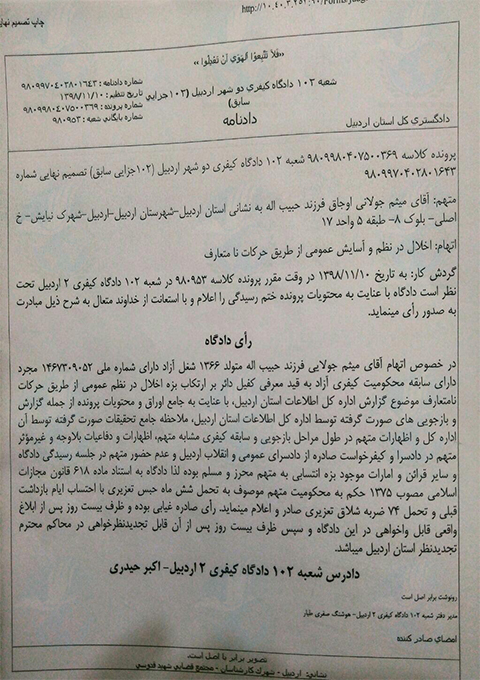 http://10.40.3.252:90/Forms/Judge
چاپ تصمیم نهایی
«فَلا تَتَّبِعوُا الهَوَی اَنْ تَعْدِلُوا »
شماره دادنامه : ۹۸۰۹۹۷۰۴۰۲۸۰۱۶۴۳
تاریخ تنظیم : ۱۳۹۸/۱۱/۱۰
شماره پرونده : ۹۸۰۹۹۸۰۴۰۷۵۰۰۳۶۹
شماره بایگانی شعبه : ۹۸۰۹۵۳
شعبه ۱۰۲ دادگاه کیفری دو شهر اردبیل (۱۰۲جزایی سابق)
دادنامه
دادگستری کل استان اردبیل
پرونده کلاسه ۹۸۰۹۹۸۰۴۰۷۵۰۰۳۶۹ شعبه ۱۰۲ دادگاه کیفری دو شهر اردبیل (۱۰۲جزایی سابق) تصمیم نهایی شماره
۹۸۰۹۹۷۰۴۰۲۸۰۱۶۴۳
متهم: آقای میثم جولانی اوجاق فرزند حبیب اله به نشانی استان اردبیل-شهرستان اردبیل-اردبیل-شهرک نیایش- خ
اصلی- بلوک ۸- طبقه ۵ واحد ۱۷
اتهام: اخلال در نظم و آسایش عمومی از طریق حرکات نا متعارف
گردش کار: به تاریخ ۱۳۹۸/۱۱/۱۰ در وقت مقرر پرونده کلاسه ۹۸۰۹۵۳ در شعبه ۱۰۲ دادگاه کیفری ۲ اردبیل تحت
نظر است دادگاه با عنایت به محتویات پرونده ختم رسیدگی را اعلام و با استعانت از خداوند متعال به شرح ذیل مبادرت
به صدور رأی مینماید.
رأی دادگاه
در خصوص اتهام آقای میثم جولایی فرزند حبیب اله متولد ۱۳۶۶ شغل آزاد دارای شماره ملی ۱۴۶۷۳۰۹۰۵۲ مجرد
دارای سابقه محکومیت کیفری آزاد به قید معرفی کفیل دائر بر ارتکاب بزه اخلال در نظم عمومی از طریق حرکات
نامتعارف موضوع گزارش اداره کل اطلاعات استان اردبیل، با عنایت به جامع اوراق و محتویات پرونده از جمله گزارش
و بازجویی های صورت گرفته توسط اداره کل اطلاعات استان اردبیل، ملاحظه جامع تحقیقات صورت گرفته توسط آن
اداره کل و اظهارات متهم در طول مراحل بازجویی و سابقه کیفری مشابه متهم، اظهارات و دفاعیات بلاوجه و غیرمؤثر
متهم در دادسرا و کیفرخواست صادره از دادسرای عمومی و انقلاب اردبیل و عدم حضور متهم در جلسه رسیدگی دادگاه
و سایر قرائن و امارات موجود بزه انتسابی به متهم محرز و مسلم بوده لذا دادگاه به استناد ماده ۶۱۸ قانون مجازات
اسلامی مصوب ۱۳۷۵ حکم به محکومیت متهم موصوف به تحمل شش ماه حبس تعزیری با احتساب ایام بازداشت
قبلی و تحمل ۷۴ ضربه شلاق تعزیری صادر و اعلام مینماید، رأی صادره غیابی بوده و ظرف بیست روز پس از ابلاغ
واقعی قابل واخواهی در این دادگاه و سپس ظرف بیست روز پس از آن قابل تجدیدنظرخواهی در محاکم محترم
تجدیدنظر استان اردبیل میباشد.
دادرس شعبه ۱۰۲ دادگاه کیفری ۲ اردبیل- اکبر حیدری
رونوشت برابر اصل است
مدیر دفتر شعبه ۱۰۲ دادگاه کیفری ۲ اردبیل- هوشنگ صفری طیار
امضای صادر کننده
تصویر برابر با اصل است.
نشانی: اردبیل - شهرک کارشناسان - مجتمع قضایی شهید قدوسی